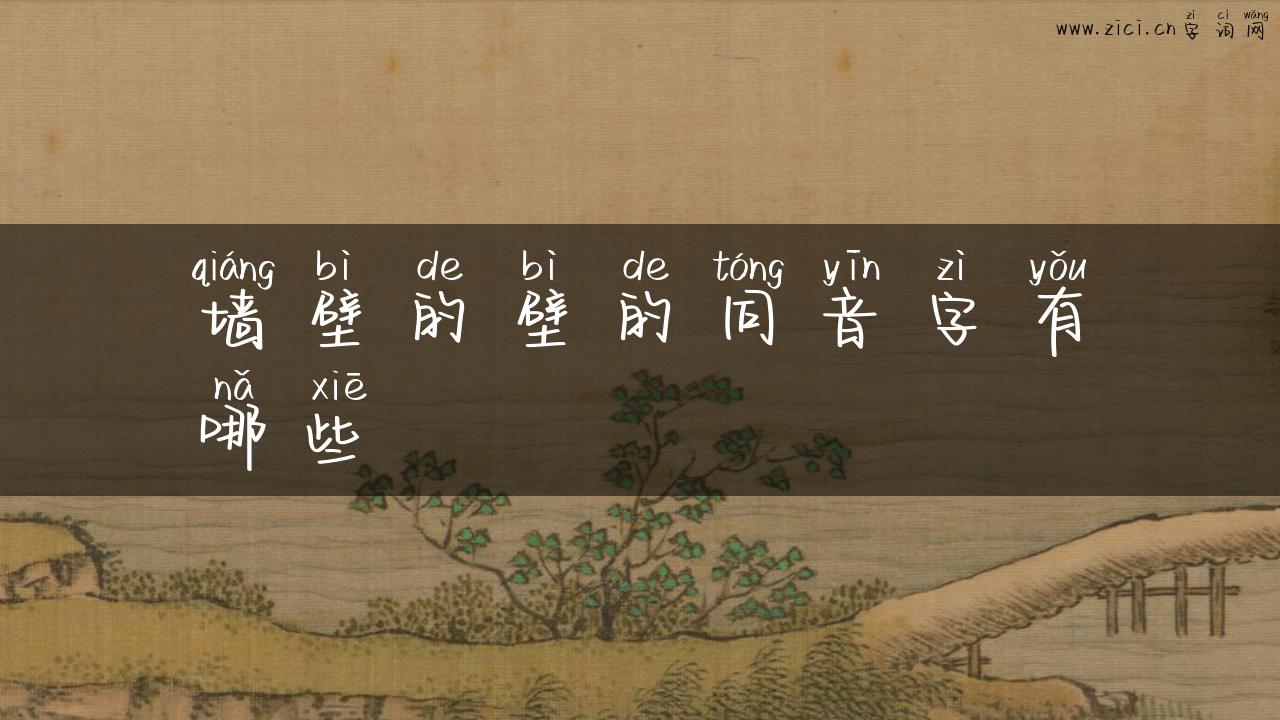 zì cí wǎng
www.zici.cn 字 词 网
qiáng bì de bì de tóng yīn zì yǒu
墙 壁 的 壁 的 同 音 字 有
nǎ xiē
哪 些